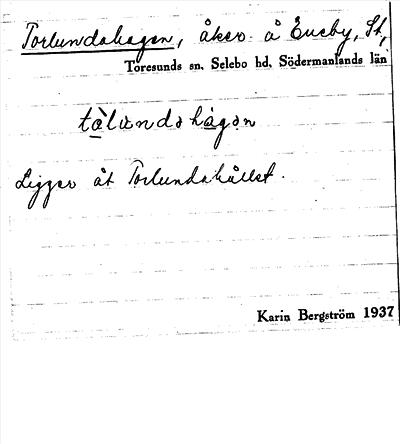 Torlundahagen, åker å Eneby, St,
Toresunds sn, Selebo hd, Södermanlands län
tàlundahàgen
Ligger åt Torlundahållet.
Karin Bergström 1937